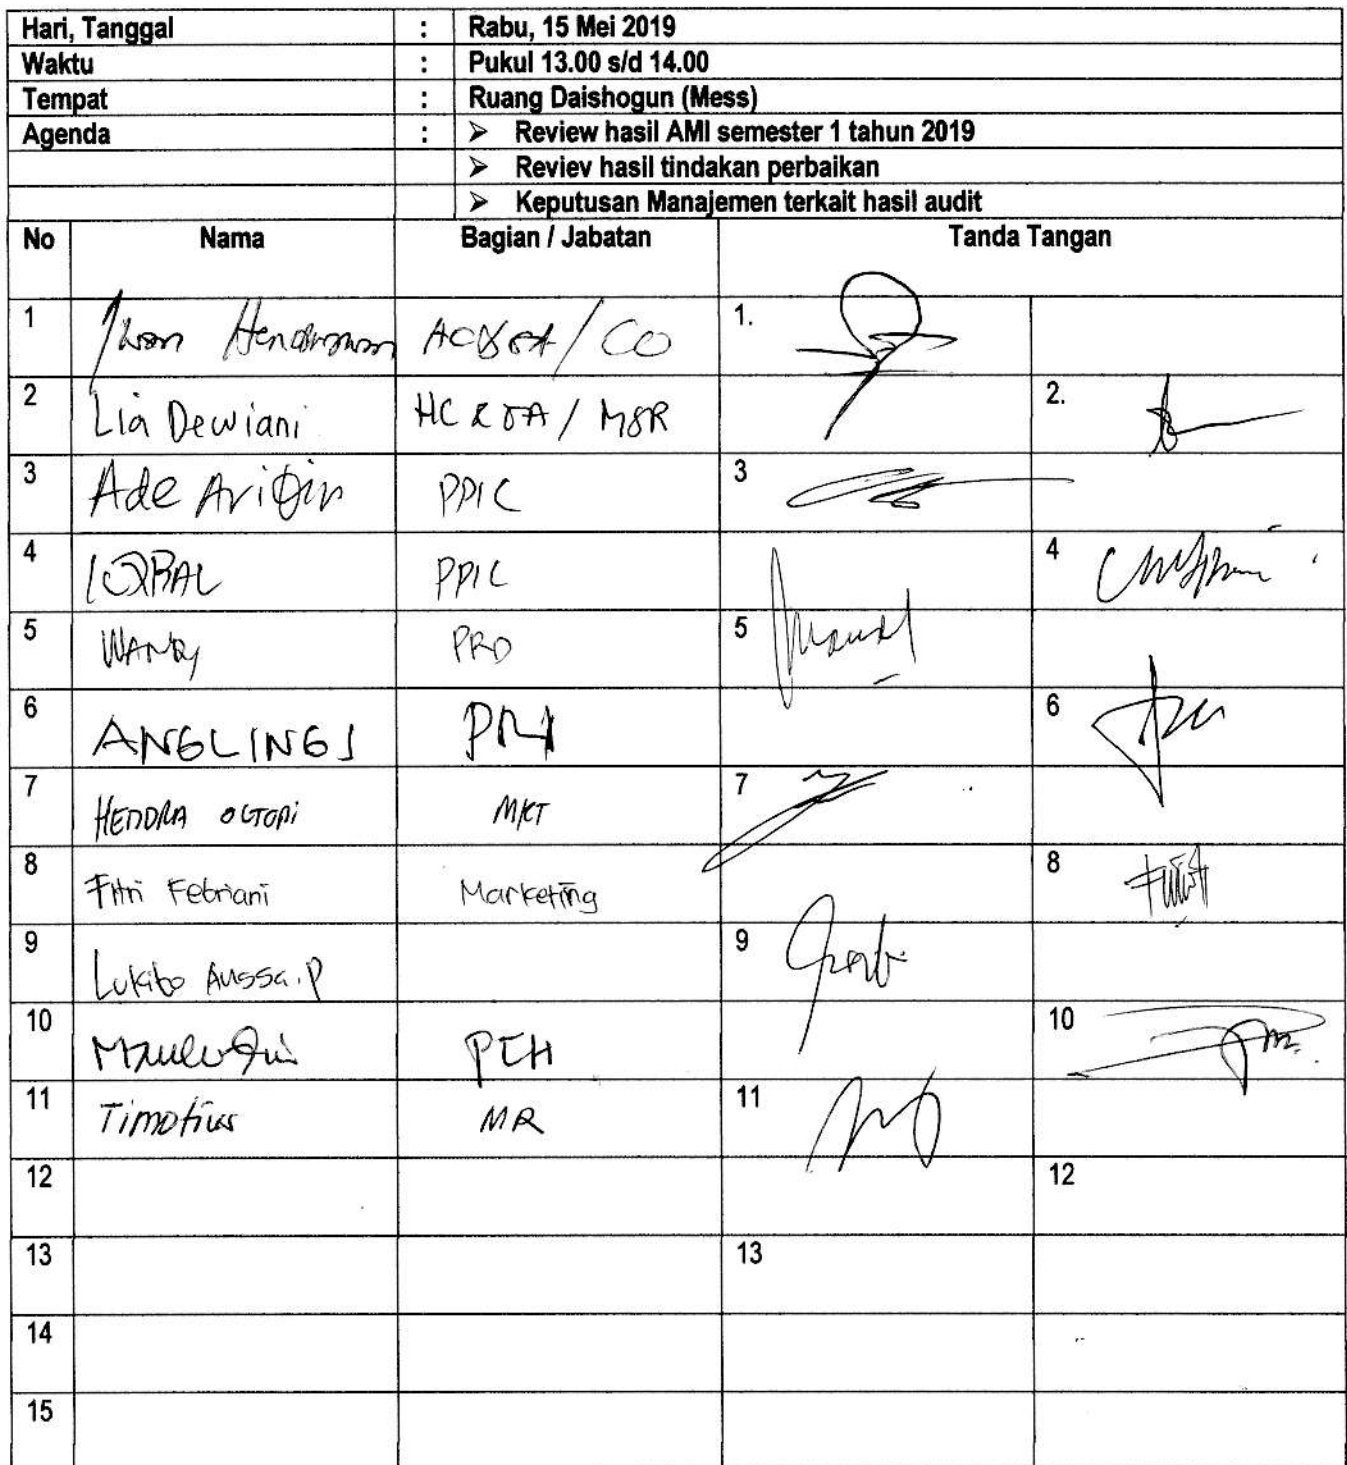 Hari, Tanggal : Rabu, 15 Mei 2019
Waktu : Pukul 13.00 s/d 14.00
Tempat : Ruang Daishogun (Mess)
Agenda : ➢ Review hasil AMI semester 1 tahun 2019
➢ Reviev hasil tindakan perbaikan
➢ Keputusan Manajemen terkait hasil audit
No Nama Bagian / Jabatan Tanda Tangan
1 / CO 1.
2 Lia Dewiani / MSR 2.
3 Ade Arifin PPIC 3
4 IQBAL PPIC 4
5 PRD 5
6 ANGLINGJ 6
7 HENDRA MKT 7
8 Fitri Febriani Marketing 8
9 Lukito Aussa.P 9
10 10
11 Timotius MR 11
12 12
13 13
14
15